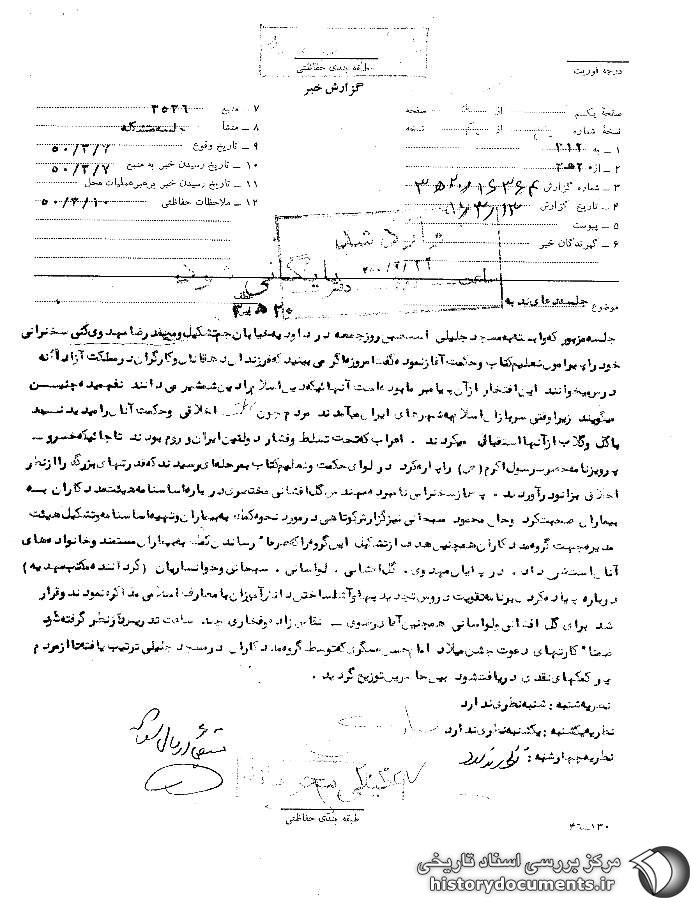 طبقه بندی حفاظتی
درجه فوریت
گزارش خبر
صفحهٔ یکم از صفحه
نسخهٔ شماره از نسخه
۱ – به ۳۱۲
۲ – از ۲۰ ه ۳
۳ – شماره گزارش
۴ – تاریخ گزارش
۵ – پیوست
۶ – گیرندگان خبر
۷ – منبع ۳۵۳۶
۸ – منشأ جلسه متشکله
۹ – تاریخ وقوع ۵۰/۳/۷
۱۰ – تاریخ رسیدن خبر به منبع ۵۰/۳/۷
۱۱ – تاریخ رسیدن خبر برهبر عملیات محل
۱۲ – ملاحظات حفاظتی ۵۰/۳/۱۰
بایگانی شود
۲۰ ه ۳
موضوع جلسه دعای ندبه
جلسه مزبور که وابسته به مسجد جلیلی است صبح روز جمعه در داودیه خیابان جم تشکیل و مهندس رضا مهدوی کنی سخنرانی
خود را پیرامون تعلیم کتاب و حکمت آغاز نموده گفت امروزه اگر می بینید که فرزندان دهقانان و کارگران در مملکت آزادانه
درس میخوانند این افتخار از آن پیامبر ما بوده است آنهائیکه دین اسلام را دین شمشیر می دانند نفهمیده چنین
میگویند زیرا وقتی سربازان اسلام به شهرهای ایران میآمدند مردم چون اخلاقی و حکمت آنان را میدیدند
با گل و گلاب از آنها استقبال میکردند . اعراب که تحت تسلط و فشار دولتین ایران و روم بودند تا جائیکه خسرو –
پرویز نامه حضرت رسول اکرم (ص) را پاره کرد در لوای حکمت و تعلیم کتاب بمرحله ای رسیدند که قدرتهای بزرگ را از نظر
اخلاقی بزانو درآوردند . پس از سخنرانی نامبرده مهندس گل افشانی مختصری درباره اساسنامه هیئت مددکاران به
بیماران صحبت کرد و حال محمود سبحانی نیز گزارش کوتاهی در مورد نحوه کمک به بیماران و تهیه اساسنامه و تشکیل هیئت
مدیره جهت گروه مددکاران همچنین هدف از تشکیل این گروه را که صرفا" رساندن کمک به بیماران مستمند و خانواده های
آنان است شرح داد . در پایان مهدوی ، گل افشانی ، لواسانی ، سبحانی و خوانساریان (گرداننده مکتب مهدیه)
درباره پیاده کردن برنامه تقویت دروس تجدیدیها و آشنا ساختن دانش آموزان با معارف اسلامی مذاکره نمودند و قرار
شد برای گل افشانی و لواسانی همچنین آقا درسوی – نقاش زاده و فخاری چند ساعت تدریس در نظر گرفته شود
ضمنا" کارتهای دعوت جشن میلاد امام حسن عسگری که توسط گروه مددکاران در مسجد جلیلی ترتیب یافته تا از مردم
نیز کمکهای نقدی دریافت شود بین حاضرین توزیع گردید .
نظریه شنبه : شنبه نظری ندارد
نظریه یکشنبه : یکشنبه نظری ندارد
نظریه چهارشنبه : نظری ندارد
طبقه بندی حفاظتی
۴۶-۱۳۰
مرکز بررسی اسناد تاریخی
historydocuments.ir